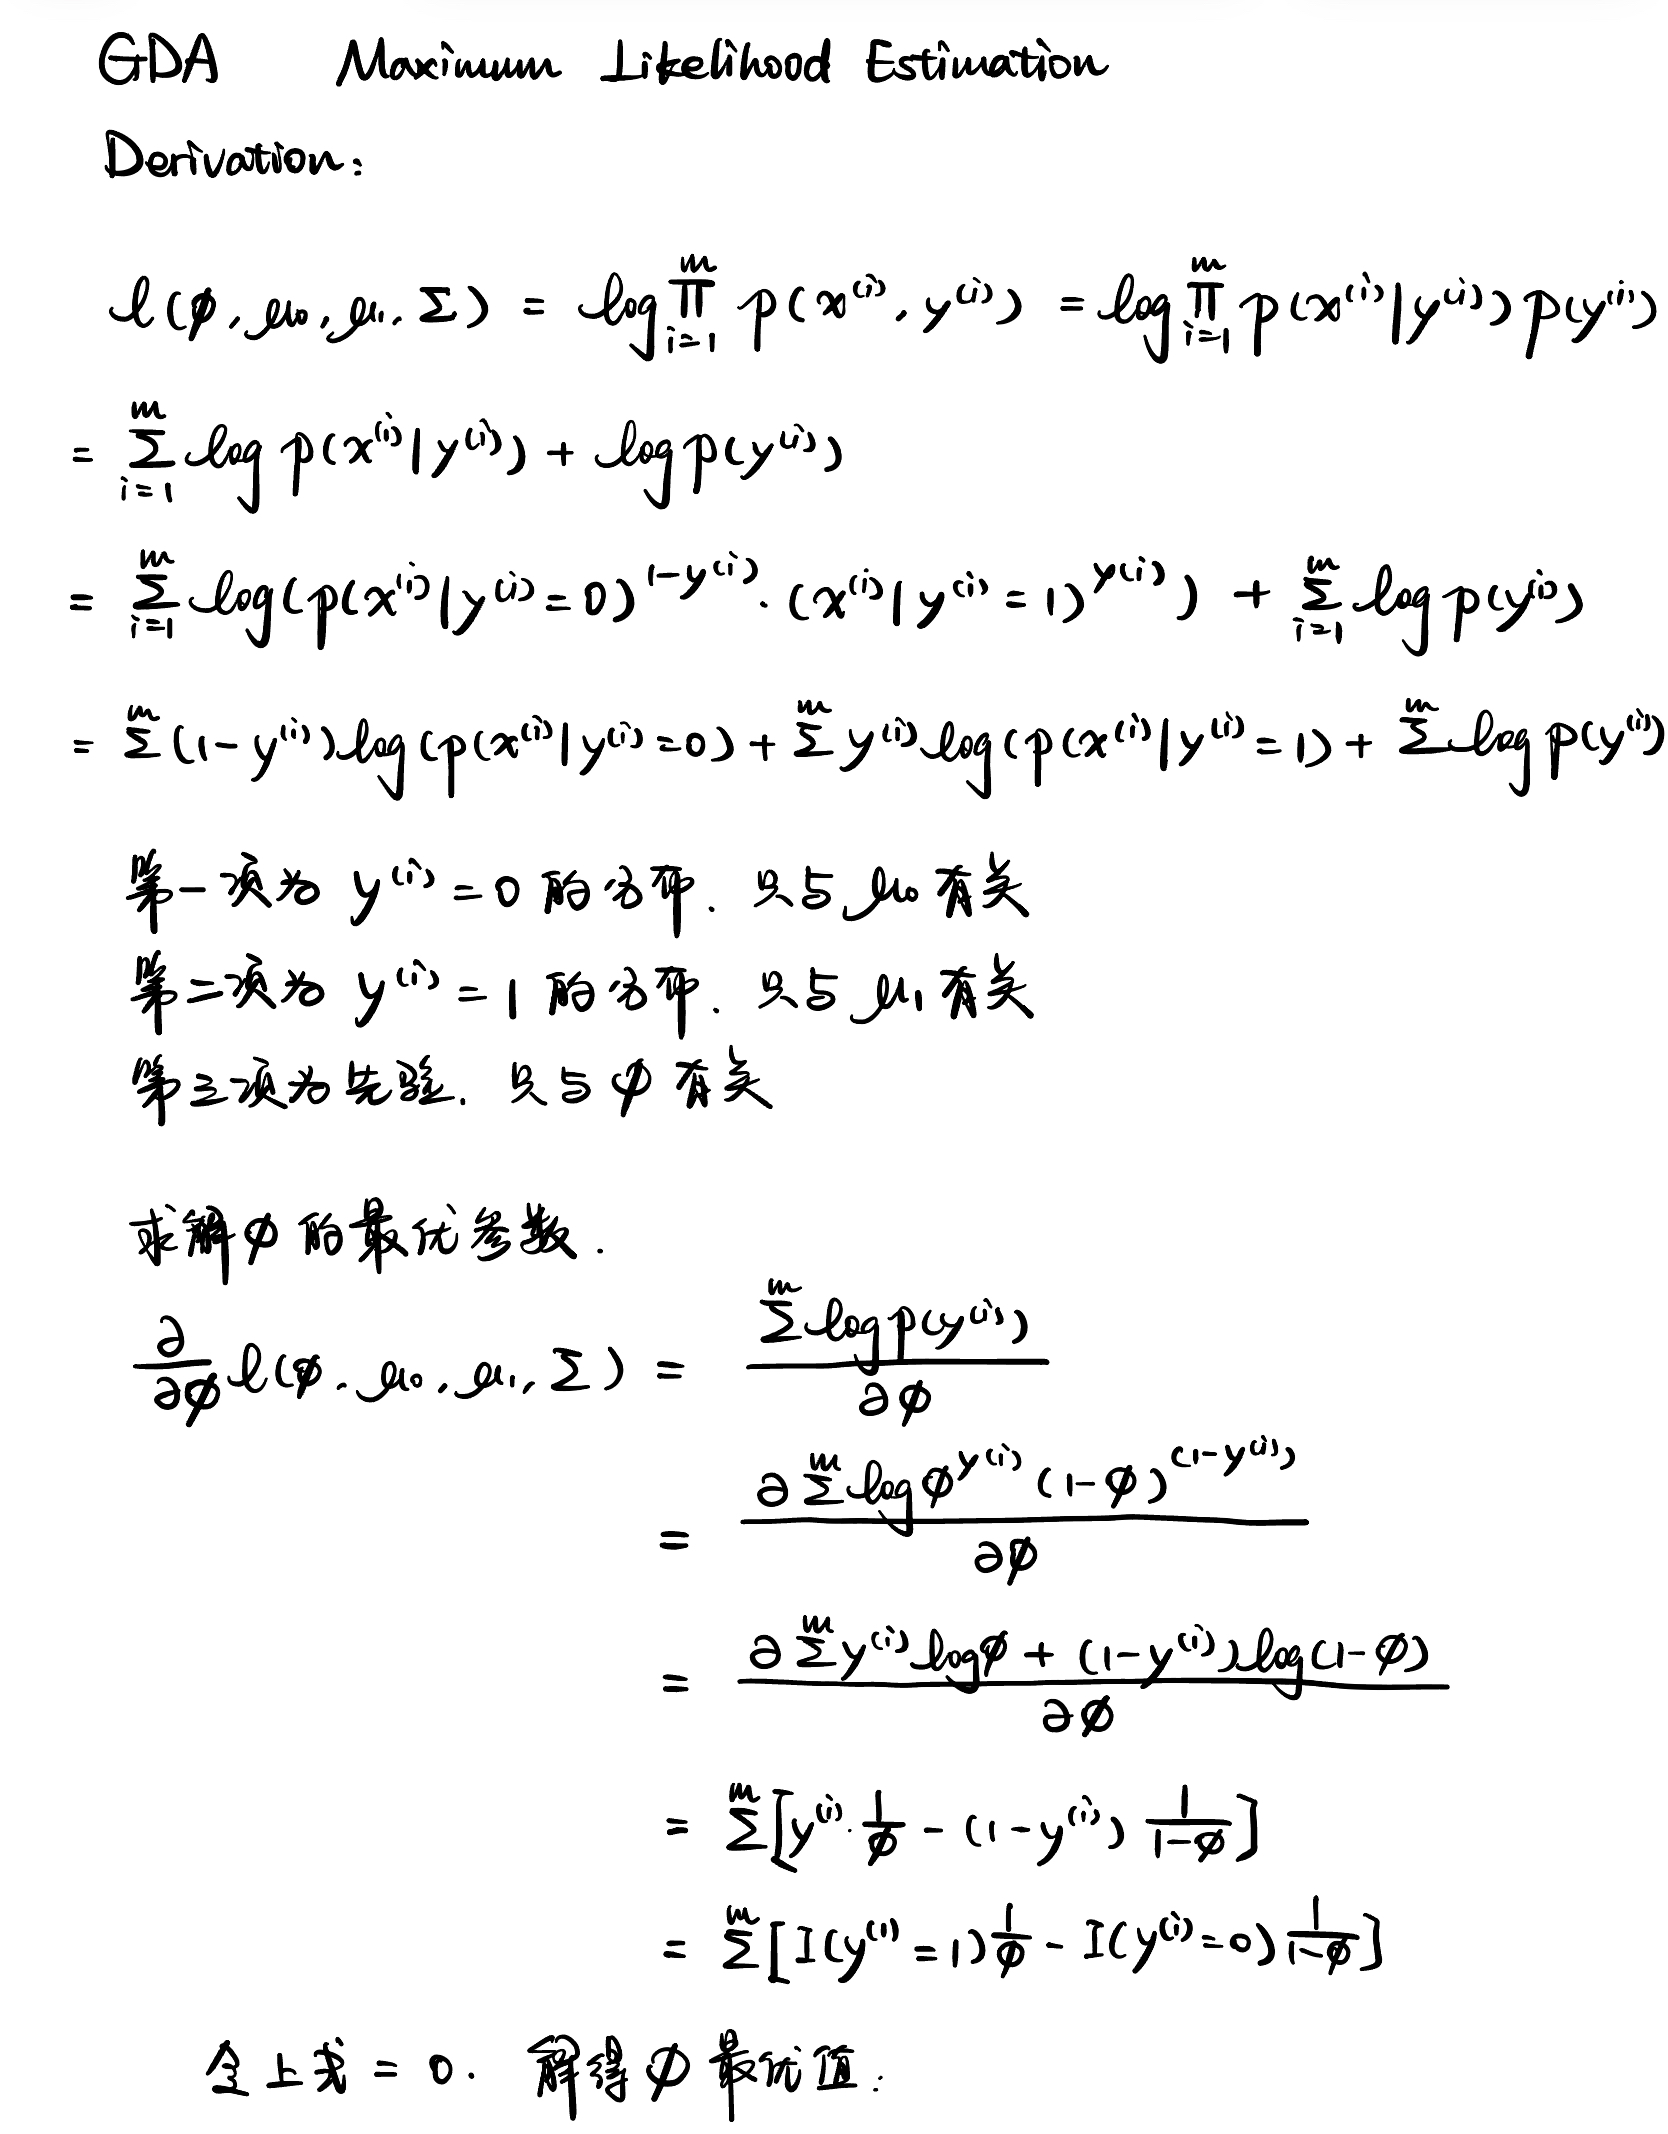 GDA Maximum Likelihood Estimation
Derivation:
l(ϕ, μ₀, μ₁, Σ) = log ∏_{i=1}^{m} p(x⁽ⁱ⁾, y⁽ⁱ⁾) = log ∏_{i=1}^{m} p(x⁽ⁱ⁾|y⁽ⁱ⁾) p(y⁽ⁱ⁾)
= ∑_{i=1}^{m} log p(x⁽ⁱ⁾|y⁽ⁱ⁾) + log p(y⁽ⁱ⁾)
= ∑_{i=1}^{m} log(p(x⁽ⁱ⁾|y⁽ⁱ⁾=0)^{1-y⁽ⁱ⁾} · (x⁽ⁱ⁾|y⁽ⁱ⁾=1)^{y⁽ⁱ⁾}) + ∑_{i=1}^{m} log p(y⁽ⁱ⁾)
= ∑^{m} (1-y⁽ⁱ⁾) log(p(x⁽ⁱ⁾|y⁽ⁱ⁾=0) + ∑^{m} y⁽ⁱ⁾ log(p(x⁽ⁱ⁾|y⁽ⁱ⁾=1) + ∑^{m} log p(y⁽ⁱ⁾)
第一项为 y⁽ⁱ⁾=0 的分布. 只与 μ₀ 有关
第二项为 y⁽ⁱ⁾=1 的分布. 只与 μ₁ 有关
第三项为先验. 只与 ϕ 有关
求解ϕ的最优参数.
∂/∂ϕ l(ϕ, μ₀, μ₁, Σ) = ∑^{m} log p(y⁽ⁱ⁾) / ∂ϕ
= ∂ ∑^{m} log ϕ^{y⁽ⁱ⁾} (1-ϕ)^{(1-y⁽ⁱ⁾)} / ∂ϕ
= ∂ ∑^{m} y⁽ⁱ⁾ log ϕ + (1-y⁽ⁱ⁾) log(1-ϕ) / ∂ϕ
= ∑^{m} [y⁽ⁱ⁾ · 1/ϕ - (1-y⁽ⁱ⁾) 1/(1-ϕ)]
= ∑^{m} [I(y⁽ⁱ⁾=1) 1/ϕ - I(y⁽ⁱ⁾=0) 1/(1-ϕ)]
令上式 = 0. 解得 ϕ 最优值: